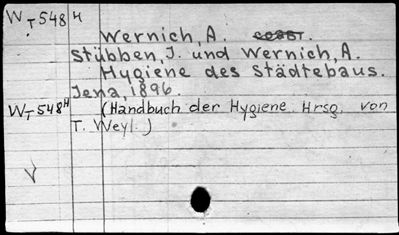 WT548H
Wernich, A.
Stübben, J. und Wernich, A.
Hygiene des Städtebaus.
Jena, 1896.
WT548H (Handbuch der Hygiene. Hrsg. von
T. Weyl.)